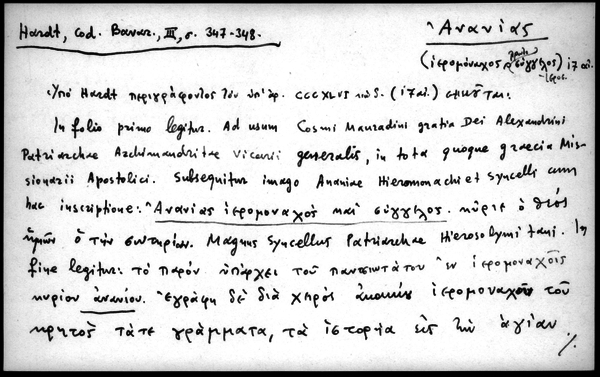 Hardt, Cod. Bavar., III, σ. 347-348.
Ἀνανίας
(ἱερομόναχος σύγγελος) ιζ αἰ.
Ὑπὸ Hardt περιγράφοντος τὸν ὑπ' ἀρ. CCCXLVI κώδ. (ιζ αἰ.) σημ͂ται:
In folio primo legitur. Ad usum Cosmi Mauradini gratia Dei Alexandrini
Patriarchae Archimandritae Vicarii generalis, in tota quoque graecia Mis-
sionarii Apostolici. Subsequitur imago Ananiae Hieromonachi et Syncelli cum
hac inscriptione: Ἀνανίας ἱερομοναχὸς καὶ σύγγελος. κύριε ὁ θεός
ἡμῶν ὁ τὴν σωτηρίαν. Magnus Syncellus Patriarchae Hierosolymitani. In
fine legitur: τὸ παρόν ὑπάρχει τοῦ πανοσιωτάτου ἐν ἱερομοναχοῖς
κυρίου ἀνανίου. Ἐγράφη δὲ διὰ χειρός ἱερομοναχοῦ τοῦ
κρητὸς τάτε γράμματα, τὰ ἱστορία εἰς τὴν ἁγίαν
./.